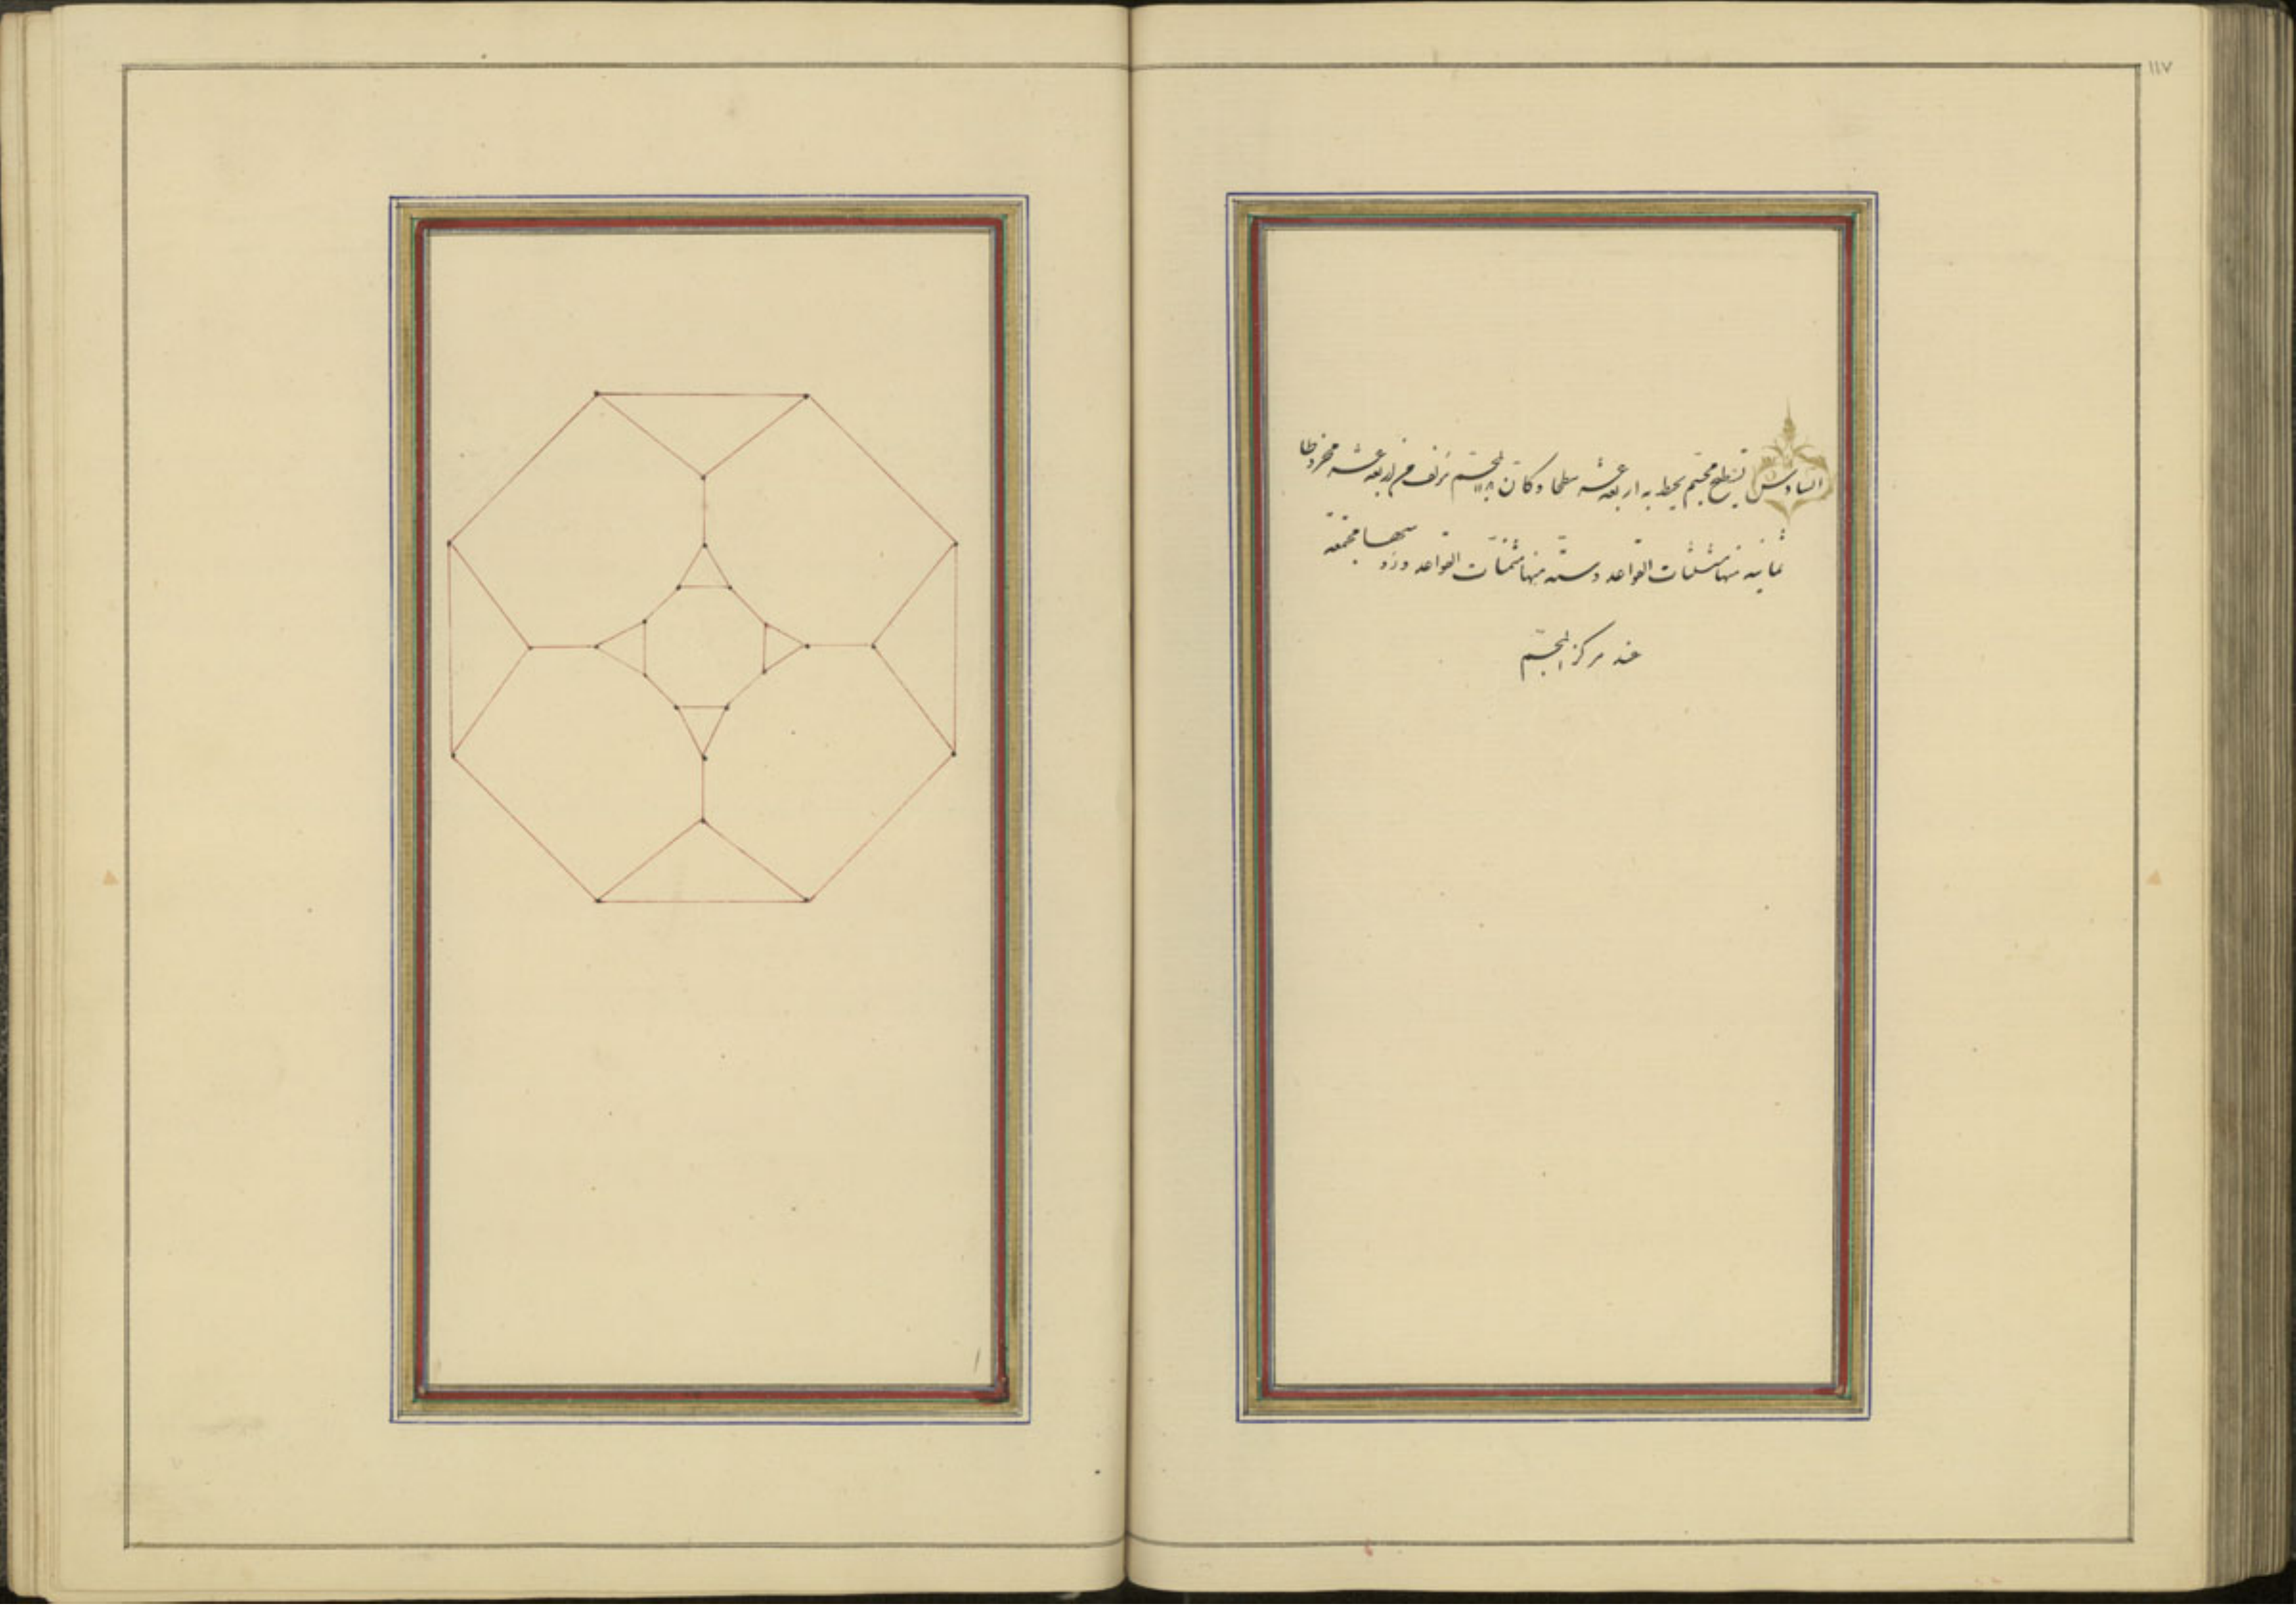 ١١٧
السادس تسطيح مجسم يحيط به اربعة عشر سطحا وكان المجسم تركب من اربعة عشر مخروطا
ثمانية منها مثلثات القواعد وستة منها مثمنات القواعد ورؤسها مجتمعة
عند مركز المجسم